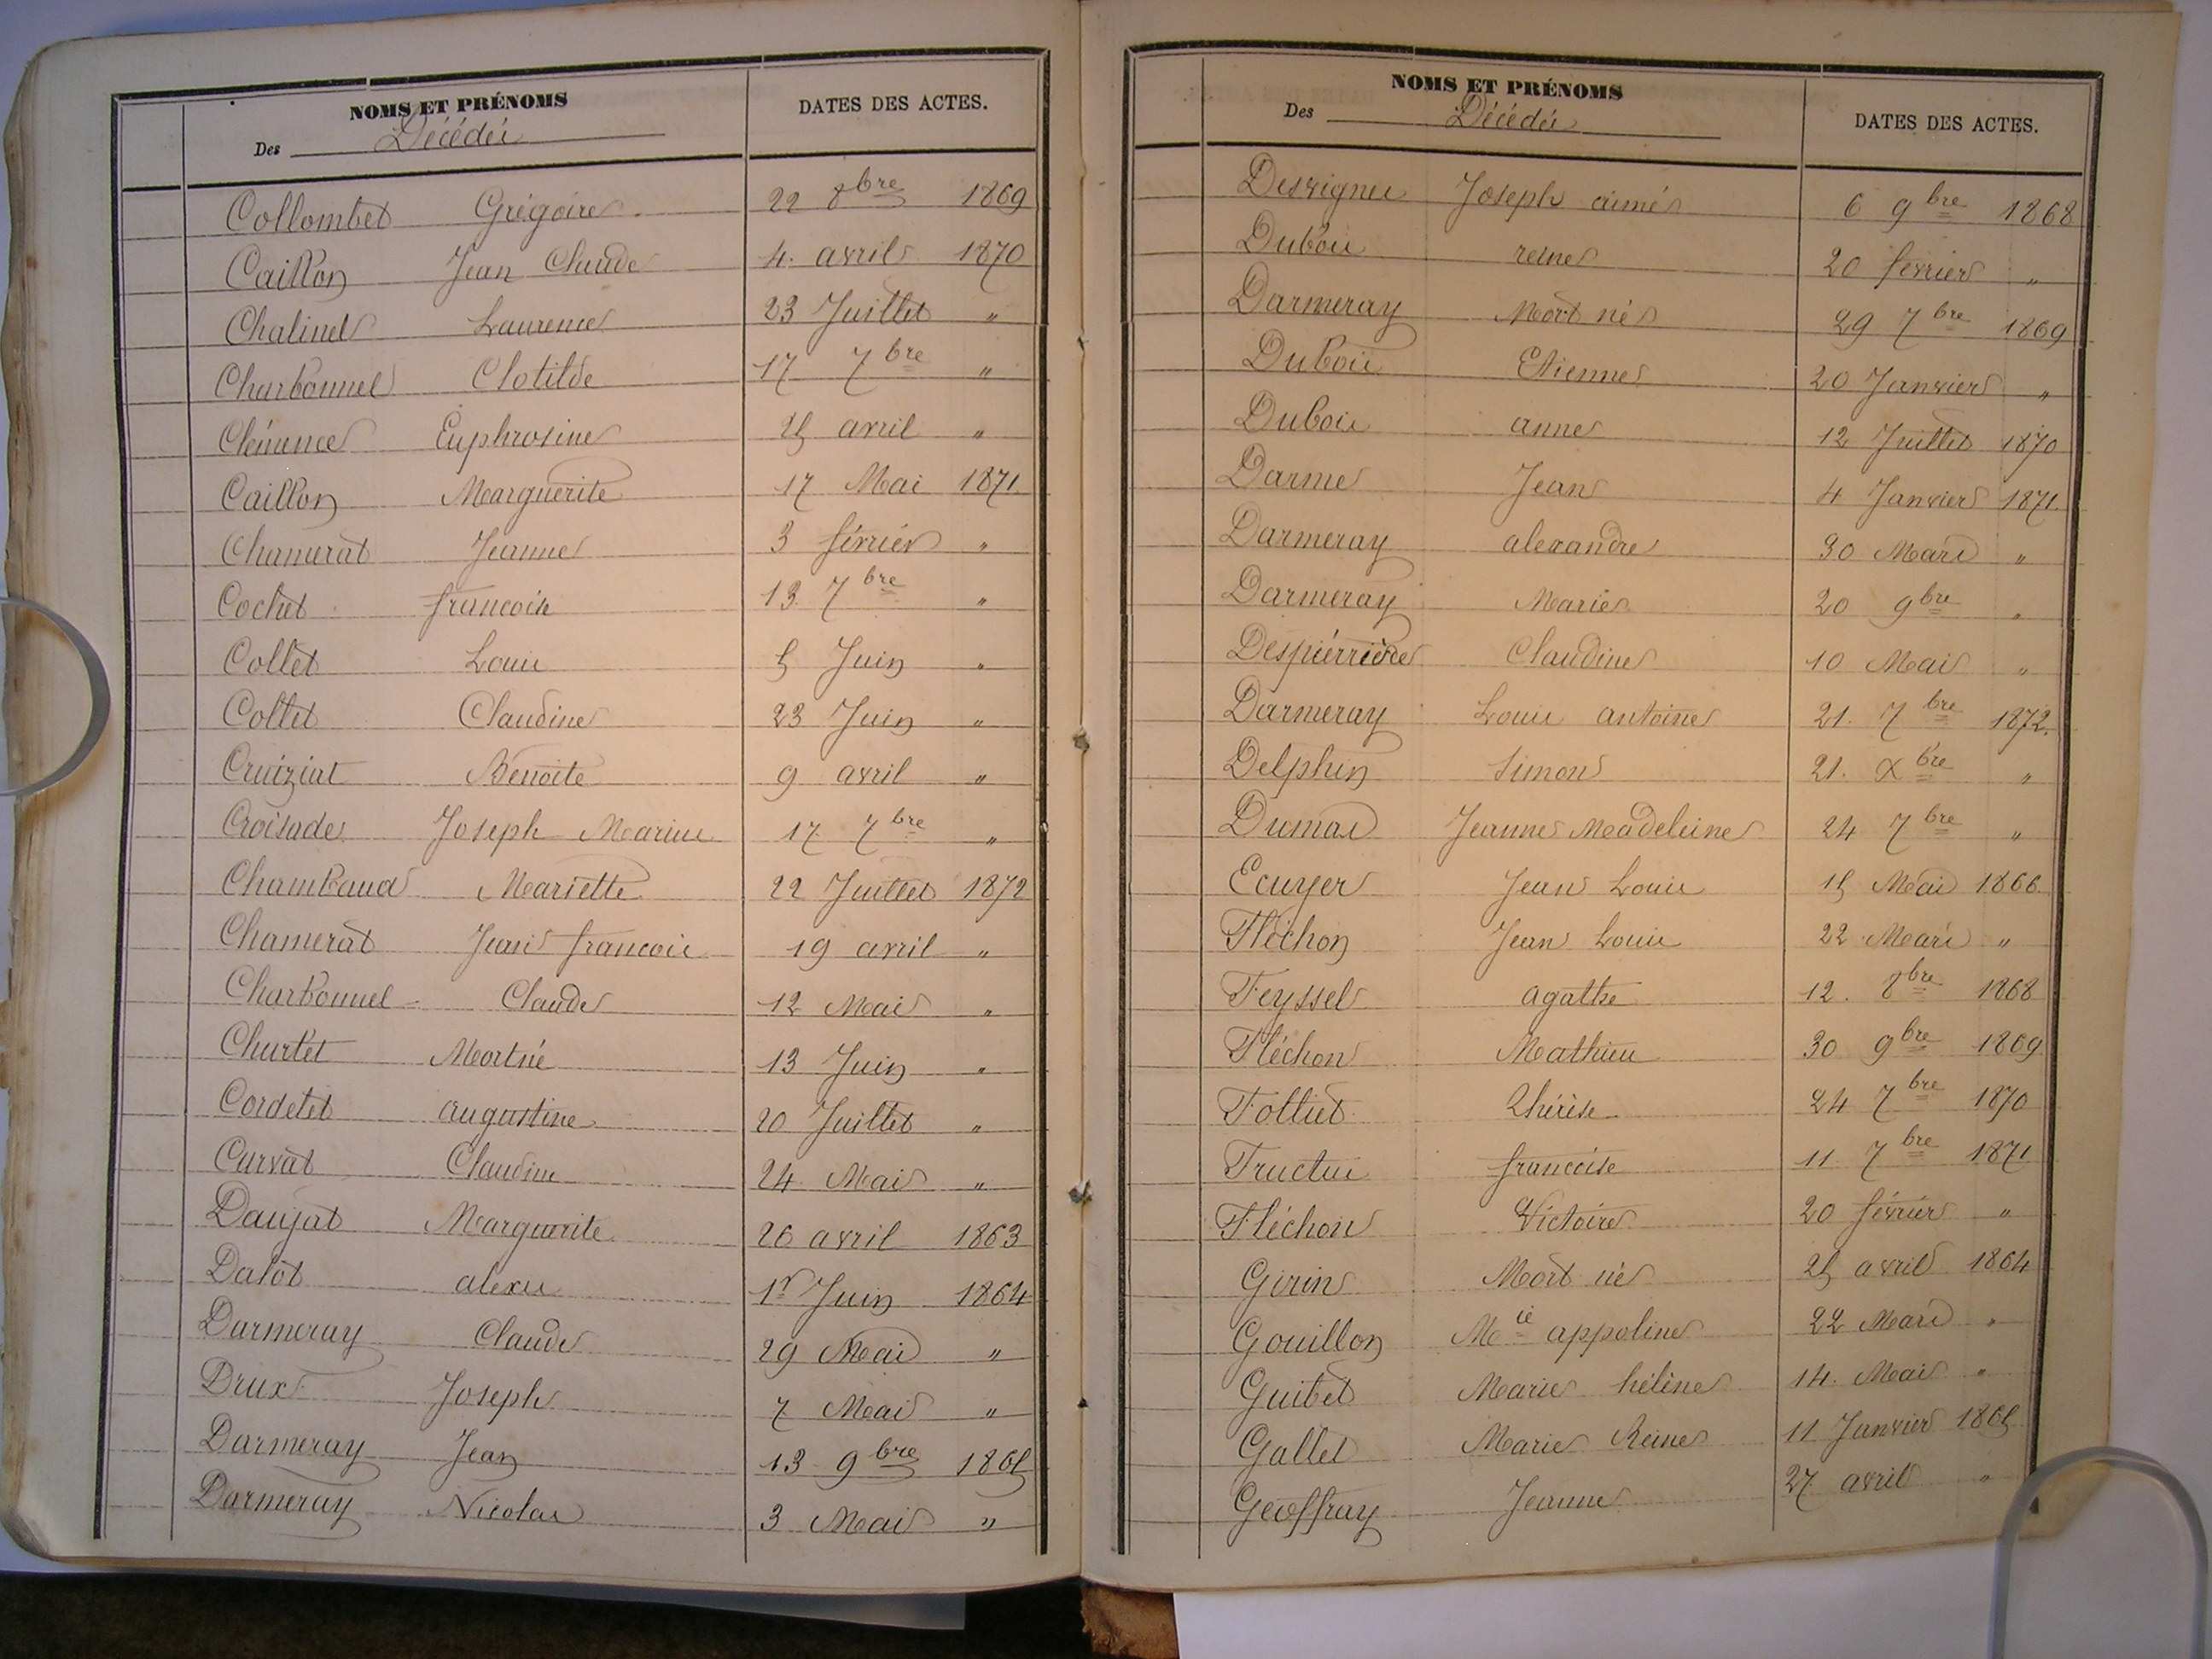 NOMS ET PRÉNOMS
Des Décédés
DATES DES ACTES.
Collombet Grégoire 22 8bre 1869
Caillon Jean Claude 4 avril 1870
Chatinel Laurence 23 Juillet "
Charbonnel Clotilde 17 7bre "
Clémence Euphrosine 25 avril "
Caillon Marguerite 17 Mai 1871
Chamerat Jeanne 3 février "
Cochet francoise 13 7bre "
Collet Louis 5 Juin "
Collet Claudine 23 Juin "
Cruiziat Benoite 9 avril "
Croisade Joseph Marius 17 7bre "
Chambaud Mariette 22 Juillet 1872
Chamerat Jean francois 19 avril "
Charbonnel Claude 12 Mai "
Churlet Mort né 13 Juin "
Cordetet augustine 20 Juillet "
Curvat Claudine 24 Mai "
Daujat Marguerite 26 avril 1863
Dalot alexis 1r Juin 1864
Darmeray Claude 29 Mai "
Drux Joseph 7 Mai "
Darmeray Jean 13 9bre 1865
Darmeray Nicolas 3 Mai "
NOMS ET PRÉNOMS
Des Décédés
DATES DES ACTES.
Desvignes Joseph aimé 6 9bre 1868
Dubois reine 20 février "
Darmeray Mort né 29 7bre 1869
Dubois Etienne 20 Janvier "
Dubois anne 12 Juillet 1870
Darme Jean 4 Janvier 1871
Darmeray alexandre 30 Mars "
Darmeray Marie 20 9bre "
Despierrière Claudine 10 Mai "
Darmeray Louis antoine 21 7bre 1872.
Delphin Simon 21. Xbre "
Dumas Jeanne Madeleine 24 7bre "
Ecuyer Jean Louis 15 Mai 1866
Fléchon Jean Louis 22 Mars "
Feyssel agathe 12. 8bre 1868
Fléchon Mathieu 30 9bre 1869
Folliet Thérèse 24 7bre 1870
Tructui francoise 11 7bre 1871
Fléchon Victoire 20 février "
Girin Mort né 25 avril 1864
Gouillon Mcie appoline 22 Mars "
Guibet Marie hélène 14. Mai "
Gallet Marie Reine 11 Janvier 1865
Geoffray Jeanne 27 avril "